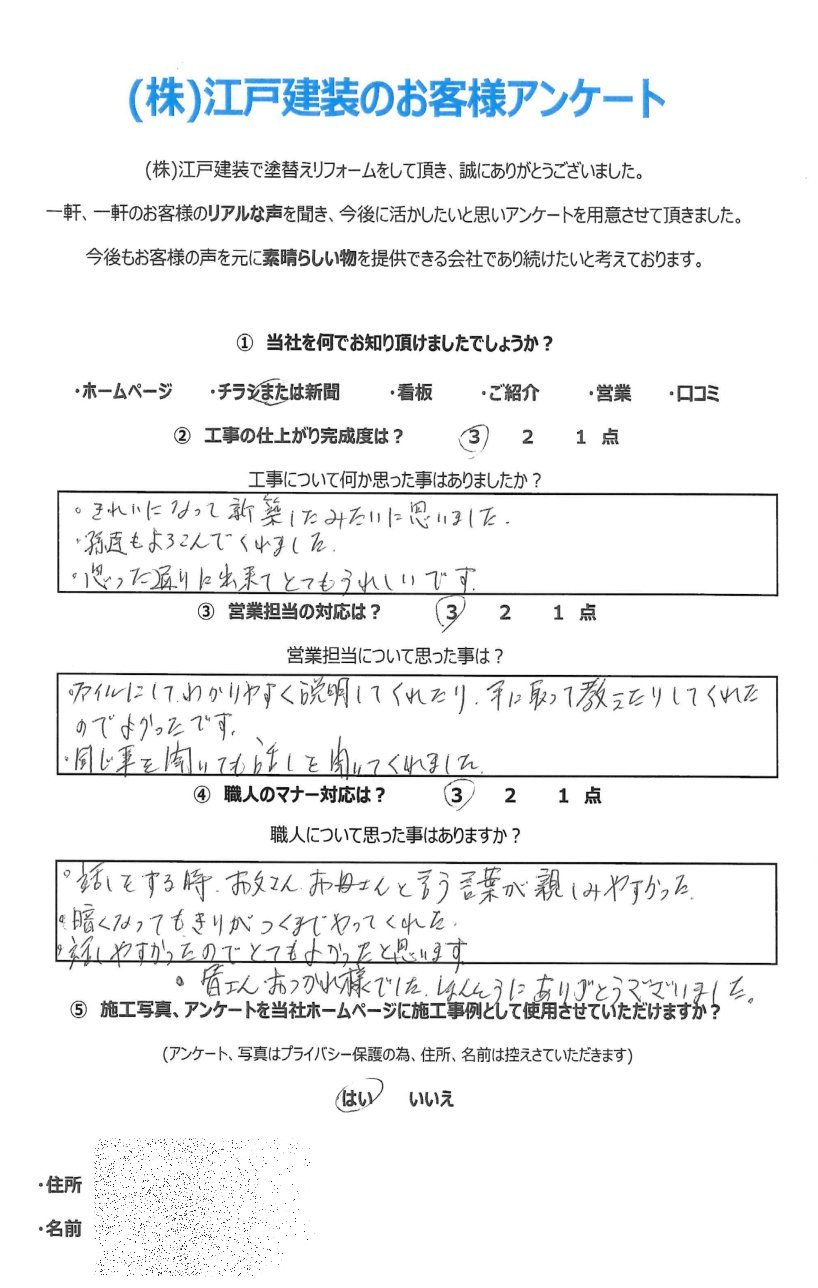 (株)江戸建装のお客様アンケート
(株)江戸建装で塗替えリフォームをして頂き、誠にありがとうございました。
一軒、一軒のお客様のリアルな声を聞き、今後に活かしたいと思いアンケートを用意させて頂きました。
今後もお客様の声を元に素晴らしい物を提供できる会社であり続けたいと考えております。
① 当社を何でお知り頂けましたでしょうか？
・ホームページ ・チラシまたは新聞 ・看板 ・ご紹介 ・営業 ・口コミ
② 工事の仕上がり完成度は？ 3 2 1 点
工事について何か思った事はありましたか？
・きれいになって新築したみたいに思いました.
・孫達もよろこんでくれました.
・思った通りに出来てとてもうれしいです.
③ 営業担当の対応は？ 3 2 1 点
営業担当について思った事は？
・ファイルにしてわかりやすく説明してくれたり、手に取って教えたりしてくれた
のでよかったです.
・同じ事を聞いても話しを聞いてくれました.
④ 職人のマナー対応は？ 3 2 1 点
職人について思った事はありますか？
・話しをする時、お父さん、お母さんと言う言葉が親しみやすかった.
・暗くなってもきりがつくまでやってくれた.
・話しやすかったのでとてもよかったと思います.
・皆さん、おつかれ様でした.ほんとうにありがとうございました。
⑤ 施工写真、アンケートを当社ホームページに施工事例として使用させていただけますか？
(アンケート、写真はプライバシー保護の為、住所、名前は控えさていただきます)
はい いいえ
・住所
・名前